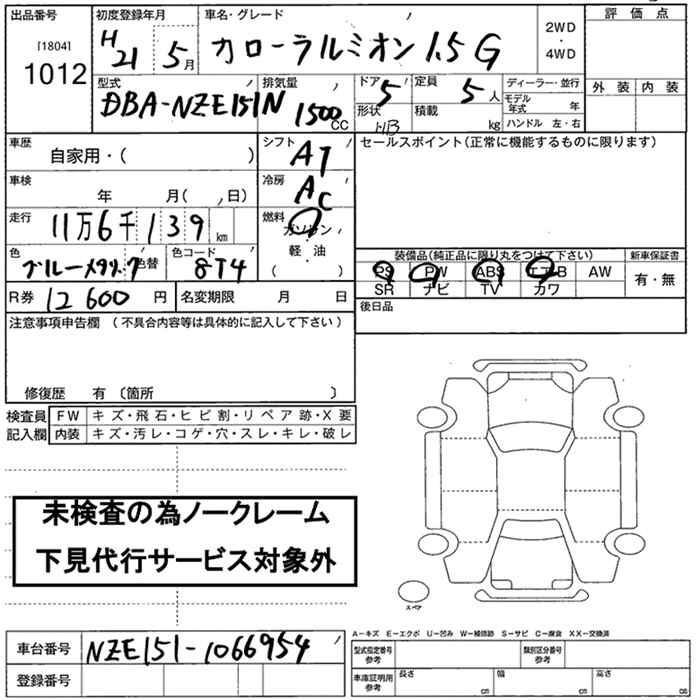 出品番号 初度登録年月 車名・グレード 評価点
[1804]
1012 H21 5月 カローラルミオン 1.5 G 2WD・4WD
外装 内装
型式 排気量 ドア 定員 ディーラー・並行
DBA-NZE151N 1500cc 5 5人 モデル年式 年
形状 HB 積載 kg ハンドル 左・右
車歴 自家用・( ) シフト AT セールスポイント(正常に機能するものに限ります)
車検 年 月( 、日) 冷房 AC
走行 11万6千139km 燃料 ガソリン・軽・油・( )
色 ブルーメタリ 色替 色コード 8T4
装備品(純正品に限り丸をつけて下さい) 新車保証書
PS PW ABS エアB AW 有・無
SR ナビ TV カワ
R券 12600円 名変期限 月 日 後日品
注意事項申告欄 (不具合内容等は具体的に記入して下さい)
修復歴 有〔箇所 〕
検査員 FW キズ・飛石・ヒビ割・リペア跡・X要
記入欄 内装 キズ・汚レ・コゲ・穴・スレ・キレ・破レ
未検査の為ノークレーム
下見代行サービス対象外
スペア
A－キズ E－エクボ U－凹み W－補修跡 S－サビ C－腐食 XX－交換済
車台番号 NZE151-1066954 型式指定番号 参考 類別区分番号 参考
登録番号 車庫証明用 参考 長さ cm 幅 cm 高さ cm